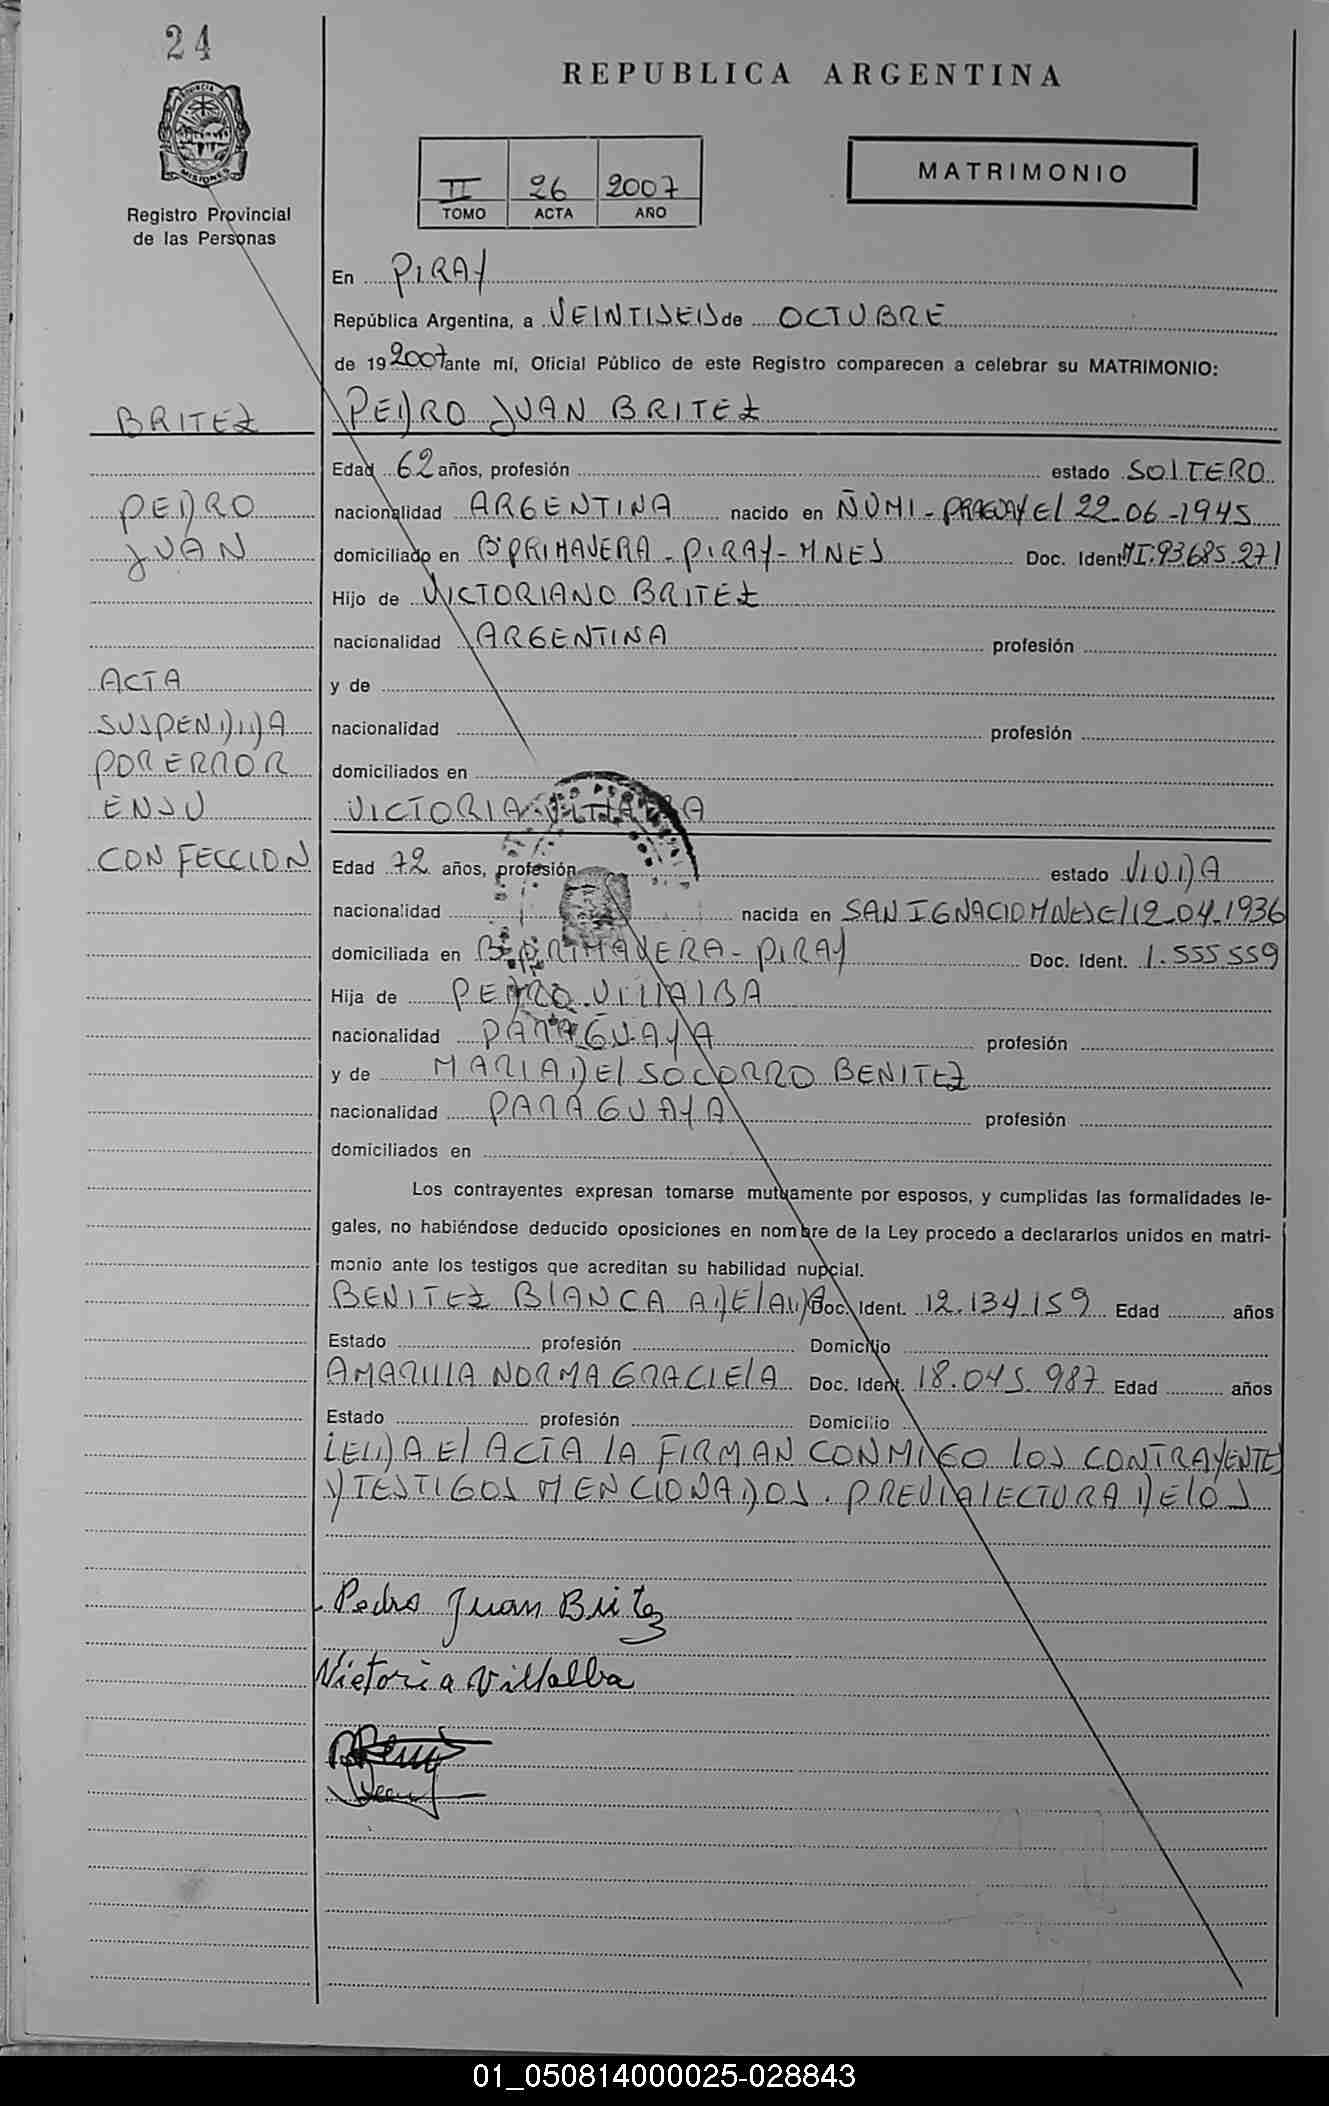 24
REPUBLICA ARGENTINA
MISIONES
Registro Provincial
de las Personas
II 26 2007
TOMO ACTA AÑO
MATRIMONIO
En PIRAY
República Argentina, a VEINTISEIS de OCTUBRE
de 19 2007 ante mí, Oficial Público de este Registro comparecen a celebrar su MATRIMONIO:
BRITEZ
PEDRO JUAN BRITEZ
Edad 62 años, profesión estado SOLTERO
PEDRO
nacionalidad ARGENTINA nacido en ÑUMI - PRAGUAY El 22-06-1945
JUAN
domiciliado en Bº PRIMAVERA - PIRAY - MNES Doc. Ident. MI.93685.271
Hijo de VICTORIANO BRITEZ
nacionalidad ARGENTINA profesión
ACTA
y de
SUSPENDIDA
nacionalidad profesión
POR ERROR
domiciliados en
EN SU
VICTORIA VILLALBA
CONFECCION
Edad 72 años, profesión estado VIUDA
nacionalidad nacida en SAN IGNACIO MNES El 12-04-1936
domiciliada en Bº PRIMAVERA - PIRAY Doc. Ident. 1.555.559
Hija de PEDRO VILLALBA
nacionalidad PARAGUAYA profesión
y de MARIA DEL SOCORRO BENITEZ
nacionalidad PARAGUAYA profesión
domiciliados en
Los contrayentes expresan tomarse mutuamente por esposos, y cumplidas las formalidades le-
gales, no habiéndose deducido oposiciones en nombre de la Ley procedo a declararlos unidos en matri-
monio ante los testigos que acreditan su habilidad nupcial.
BENITEZ BLANCA ADELAIDA Doc. Ident. 12.134.159 Edad años
Estado profesión Domicilio
AMARILLA NORMA GRACIELA Doc. Ident. 18.045.987 Edad años
Estado profesión Domicilio
LEIDA El ACTA LA FIRMAN CONMIGO LOS CONTRAYENTES
Y TESTIGOS MENCIONADOS. PREVIA LECTURA DE LOS
Pedro Juan Britez
Victoria Villalba
01_050814000025-028843